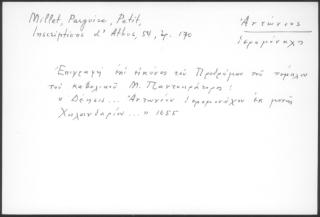 Millet, Pargoire, Petit,
Inscriptions d'Athos, 54, ἀρ. 170
Ἀντώνιος
ἱερομόναχος
Ἐπιγραφὴ ἐπὶ εἰκόνος τοῦ Προδρόμου τοῦ τέμπλου
τοῦ καθολικοῦ Μ. Παντοκράτορος :
« Δέησις... Ἀντωνίου ἱερομονάχου ἐκ μονῆς
Χιλανδαρίου... » 1655